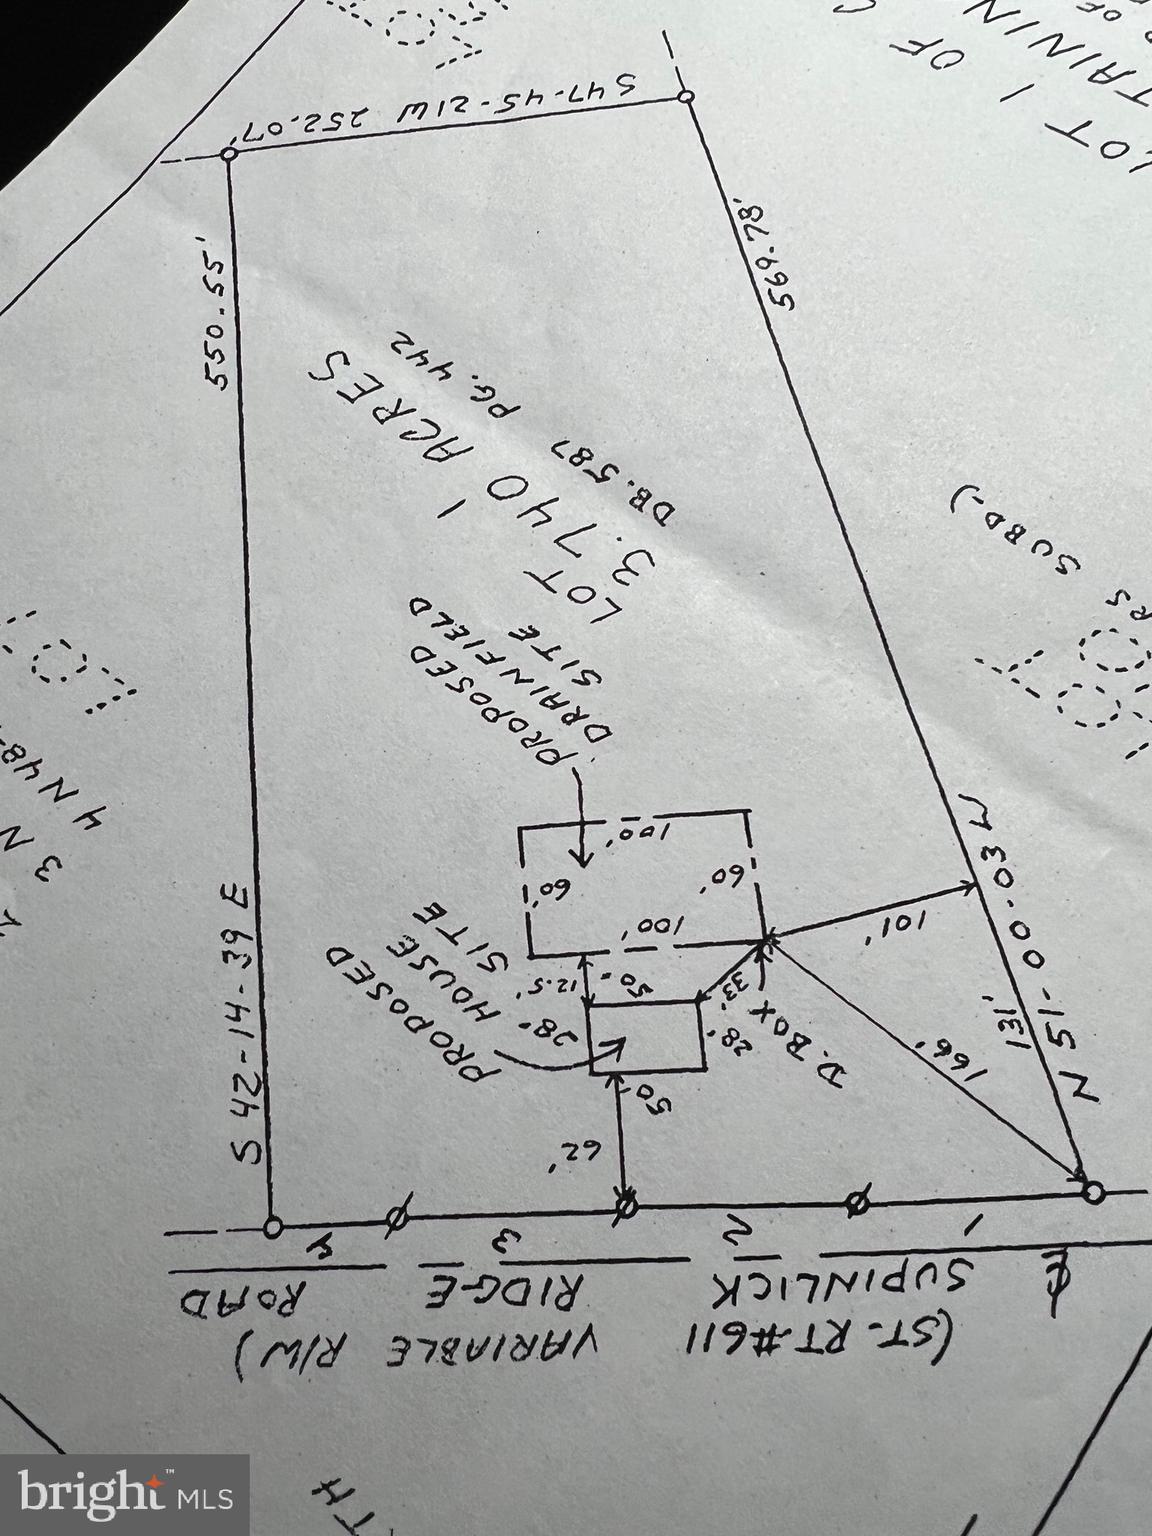 S47-45-21W 252.07'
550.55'
S 42-14-39 E
569.78'
N 51-00-03 W
LOT 1
3.740 ACRES
DB. 587 PG. 442
PROPOSED
DRAINFIELD
SITE
100'
60'
60'
100'
PROPOSED
HOUSE
SITE
12.5'
50'
28'
28'
50'
33'
D. BOX
101'
131'
166'
62'
1
2
3
4
℄ SUPINLICK RIDGE ROAD
(ST. RT. #611 VARIABLE R/W)
LOT 1 OF
SUBD.)
4 N48-
3 N
2
TH
bright™ MLS